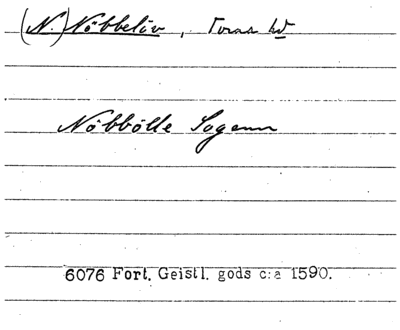 (N.) Nöbbelöv, Torna hd
Nöbbölle Sogenn
6076 Fort. Geistl. gods c:a 1590.